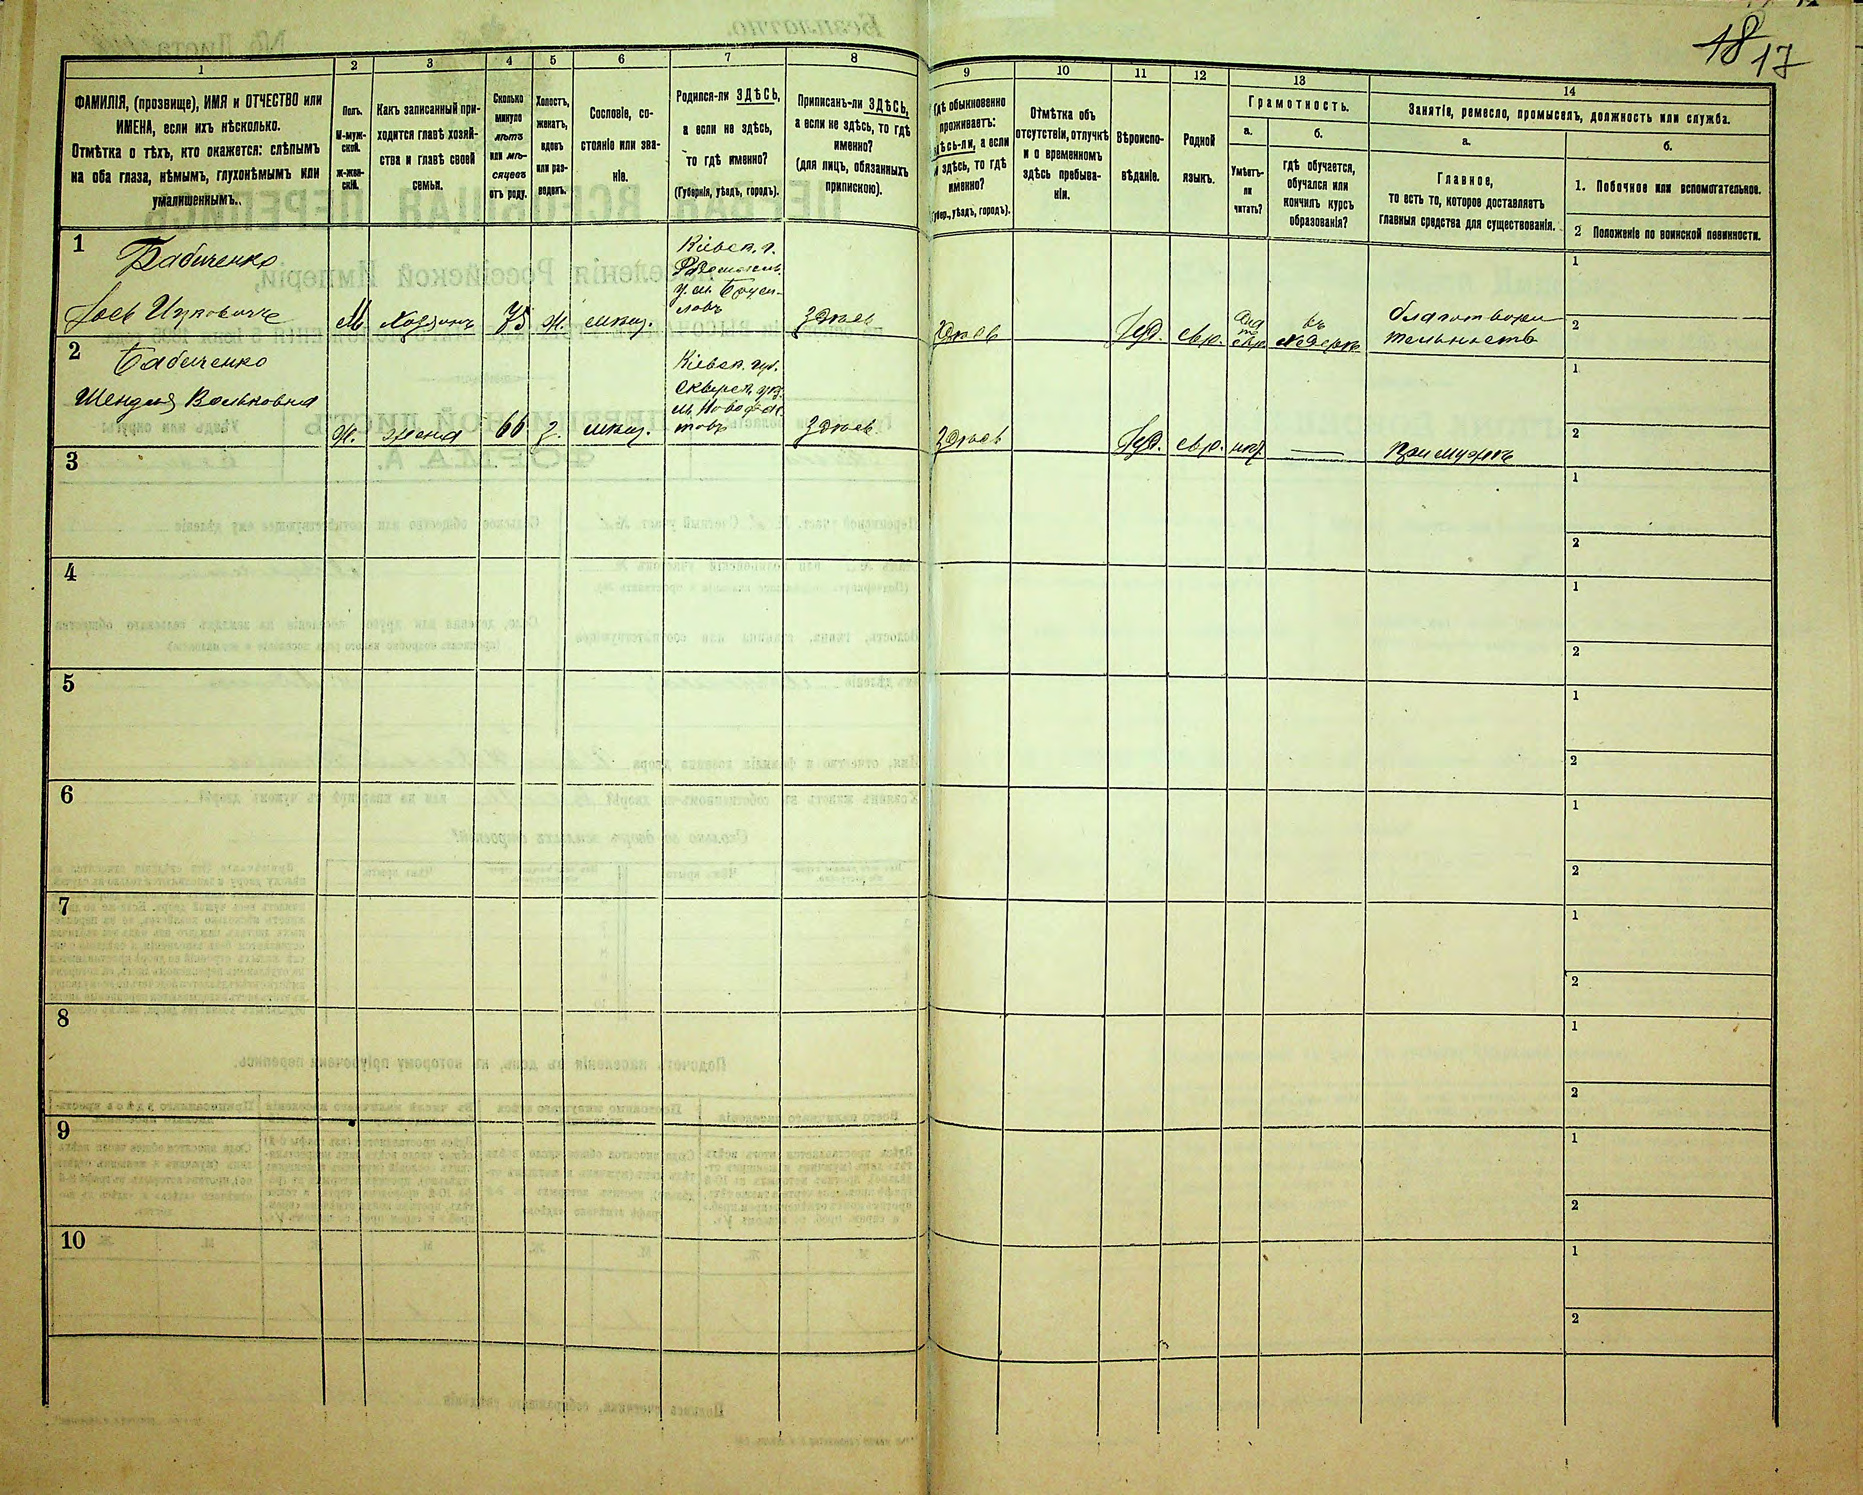 18 17
1
2
3
4
5
6
7
8
9
10
11
12
13
14
ФАМИЛІЯ, (прозвище), ИМЯ и ОТЧЕСТВО или
ИМЕНА, если ихъ нѣсколько.
Отмѣтка о тѣхъ, кто окажется: слѣпымъ
на оба глаза, нѣмымъ, глухонѣмымъ или
умалишеннымъ.
Полъ.
М-муж-
ской.
Ж-жен-
скій.
Какъ записанный при-
ходится главѣ хозяй-
ства и главѣ своей
семьи.
Сколько
минуло
лѣтъ
или мѣ-
сяцевъ
отъ роду.
Холостъ,
женатъ,
вдовъ
или раз-
веденъ.
Сословіе, со-
стояніе или зва-
ніе.
Родился-ли ЗДѢСЬ,
а если не здѣсь,
то гдѣ именно?
(Губернія, уѣздъ, городъ).
Приписанъ-ли ЗДѢСЬ,
а если не здѣсь, то гдѣ
именно?
(для лицъ, обязанныхъ
припискою).
Гдѣ обыкновенно
проживаетъ:
здѣсь-ли, а если
не здѣсь, то гдѣ
именно?
(Губер., уѣздъ, городъ).
Отмѣтка объ
отсутствіи, отлучкѣ
и о временномъ
здѣсь пребыва-
ніи.
Вѣроиспо-
вѣданіе.
Родной
языкъ.
Грамотность.
а.
Умѣетъ-
ли
читать?
б.
гдѣ обучается,
обучался или
кончилъ курсъ
образованія?
Занятіе, ремесло, промыселъ, должность или служба.
а.
Главное,
то есть то, которое доставляетъ
главныя средства для существованія.
б.
1. Побочное или вспомогательное.
2 Положеніе по воинской повинности.
1
Бабиченко
Іось Ицковичъ
М
хозяинъ
75
ж.
мѣщ.
Кіевск. г.
Радомысл.
у. м. Бруси-
ловъ
здѣсь
здѣсь
Іуд.
евр.
да
евр
въ
хедерѣ
благотвори
тельность
1
2
2
Бабиченко
Шендля Вольковна
ж.
жена
66
з.
мѣщ.
Кіевск. губ.
Сквирск. уѣз.
м. Новофас
товъ
здѣсь
здѣсь
Іуд.
евр.
нѣт
—
при мужѣ
1
2
3
1
2
4
1
2
5
1
2
6
1
2
7
1
2
8
1
2
9
1
2
10
1
2